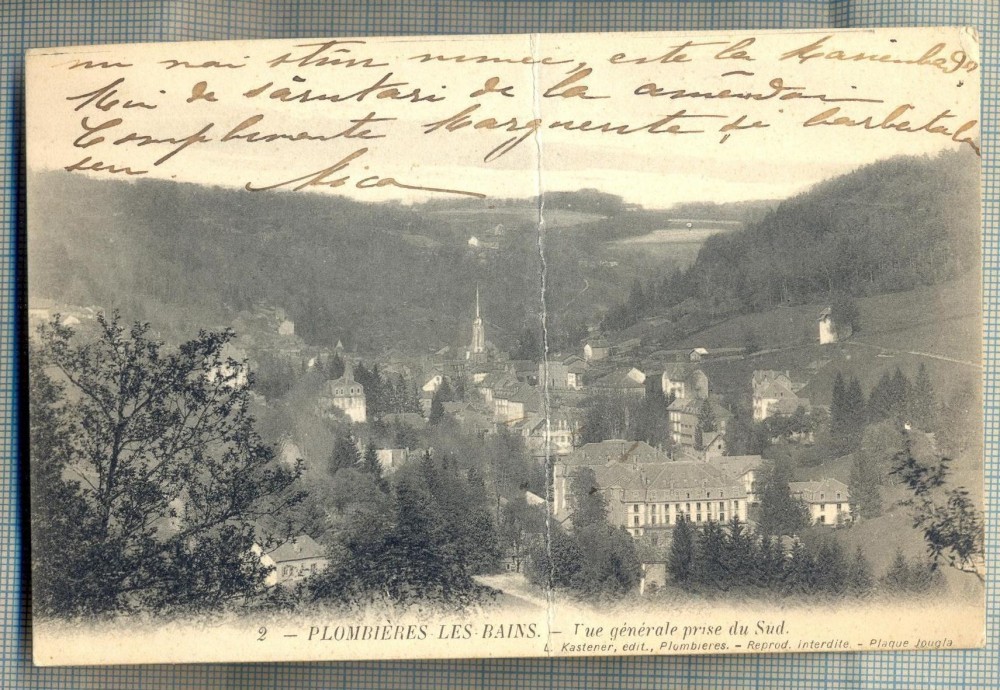 nu mai stim nimic, este la Marienbad
Mii de sărutari de la amêndoi
Complimente Marguerite și barbatului
seu. Mica
2 — PLOMBIÈRES-LES-BAINS. — Vue générale prise du Sud.
L. Kastener, édit., Plombières. – Reprod. interdite. – Plaque Jougla